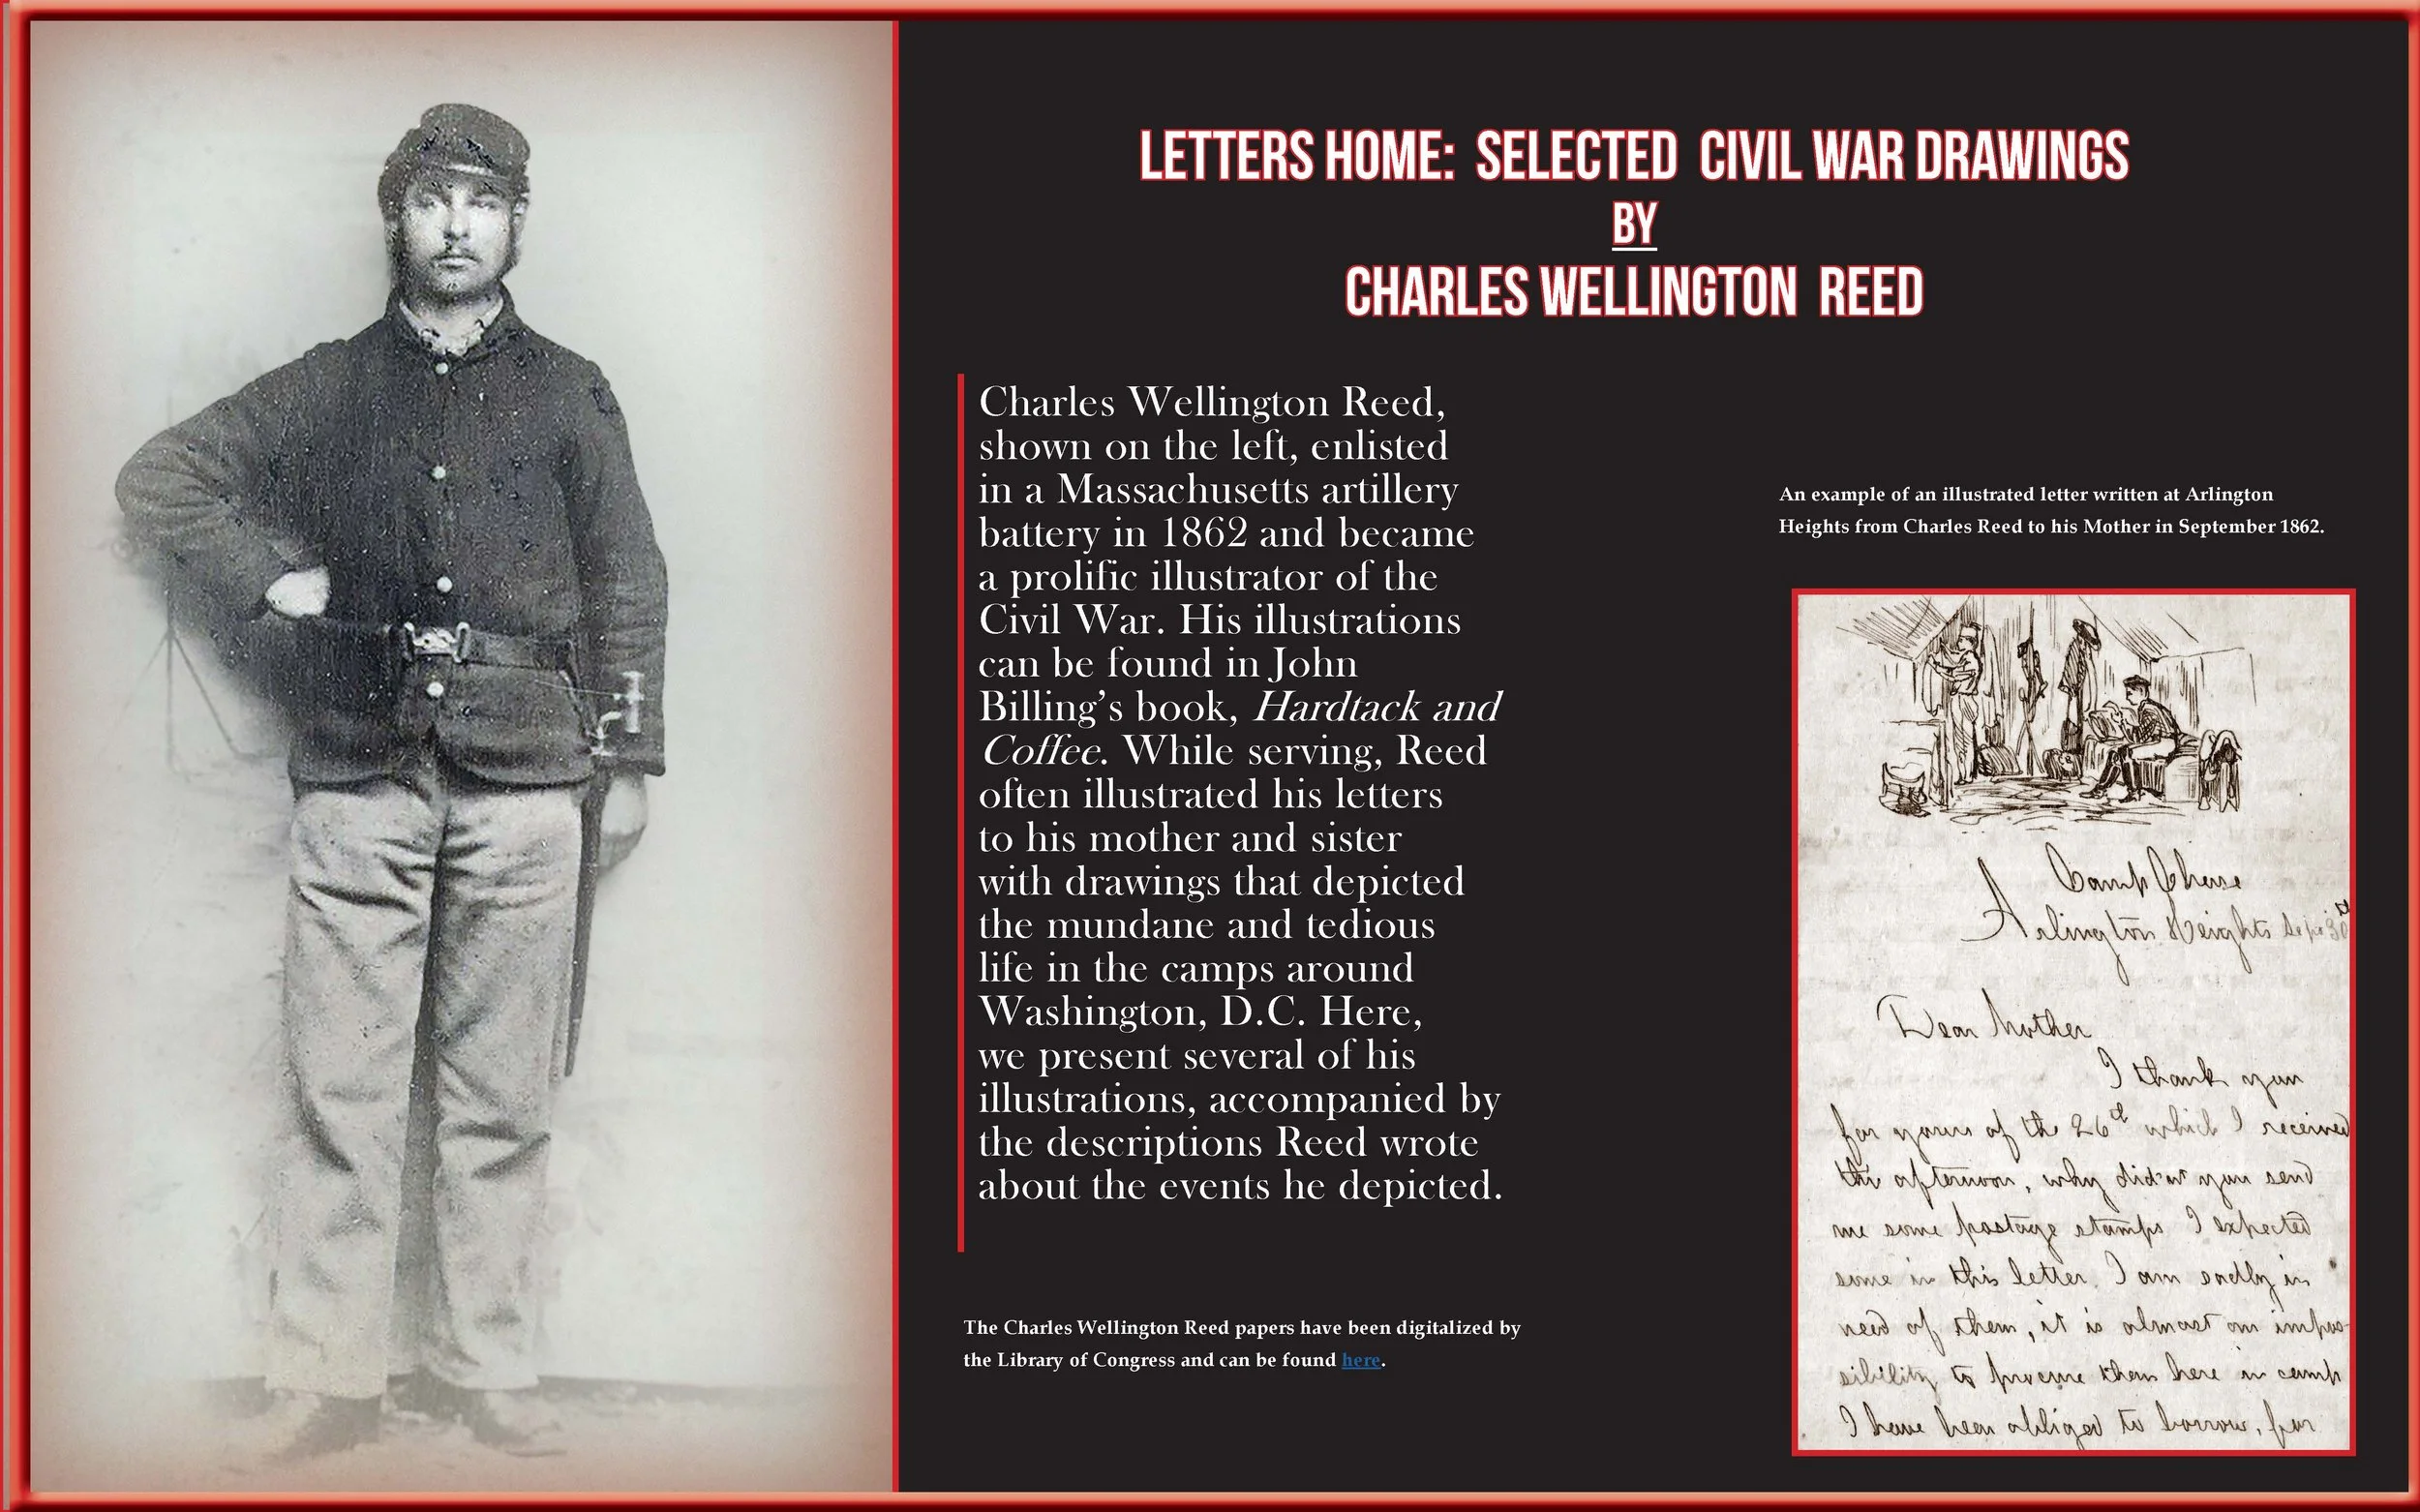 LETTERS HOME: SELECTED CIVIL WAR DRAWINGS
BY
CHARLES WELLINGTON REED
Charles Wellington Reed,
shown on the left, enlisted
in a Massachusetts artillery
battery in 1862 and became
a prolific illustrator of the
Civil War. His illustrations
can be found in John
Billing’s book, Hardtack and
Coffee. While serving, Reed
often illustrated his letters
to his mother and sister
with drawings that depicted
the mundane and tedious
life in the camps around
Washington, D.C. Here,
we present several of his
illustrations, accompanied by
the descriptions Reed wrote
about the events he depicted.
The Charles Wellington Reed papers have been digitalized by
the Library of Congress and can be found here.
An example of an illustrated letter written at Arlington
Heights from Charles Reed to his Mother in September 1862.
Camp Chase
Arlington Heights Sept 30th
Dear Mother
I thank you
for yours of the 26th which I received
this afternoon, why didn't you send
me some postage stamps I expected
some in this letter. I am sadly in
need of them, it is almost an impos-
sibility to procure them here in camp
I have been obliged to borrow, for